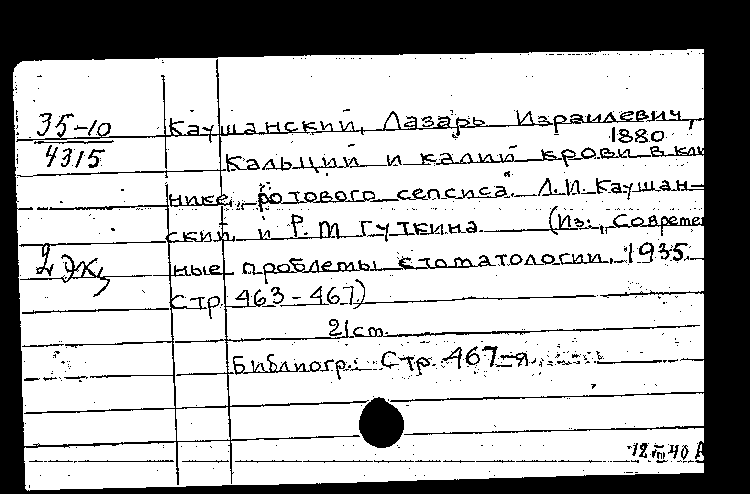 35-10
4315
Каушанский, Лазарь Израилевич,
1880
Кальций и калий крови в кли
нике „ротового сепсиса". Л.И. Каушан-
ский и Р.М Гуткина (Из: „Современ
ные проблемы стоматологии, 1935.
Стр. 463-467)
2 экз
2/ст.
Библиогр.: Стр. 467-я
12 VIII 40